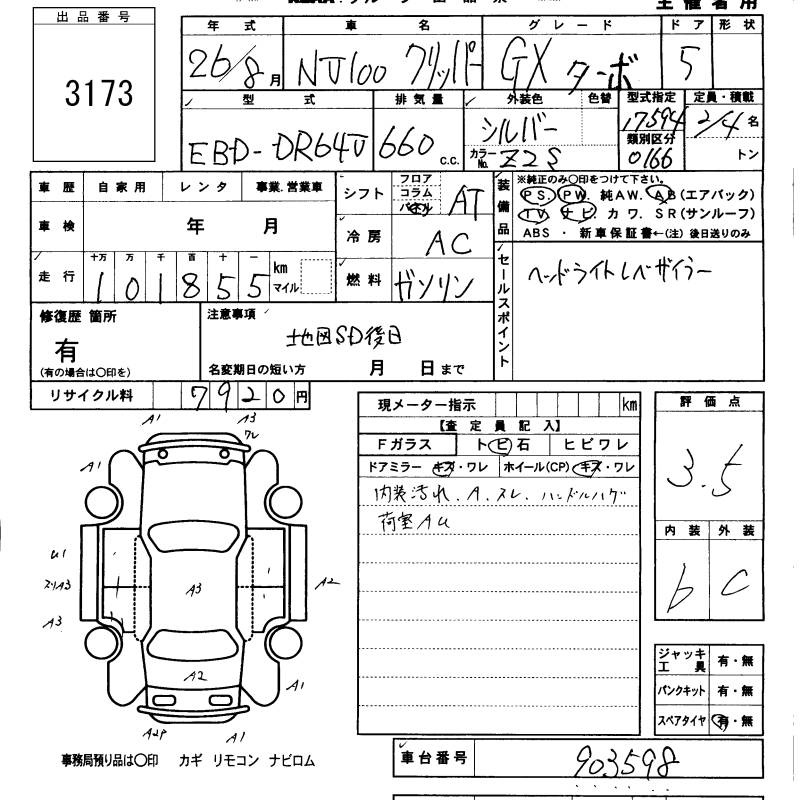 出品番号
3173
年式 車名 グレード ドア 形状
26/8月 NV100 クリッパー GX ターボ 5
型式 排気量 外装色 色替 型式指定 定員・積載
EBD-DR64V 660 c.c. シルバー 17594 2/4名
カラーNo. Z2S 類別区分 0166 トン
車歴 自家用 レンタ 事業.営業車
車検 年 月
走行 十万 万 千 百 十 一 km マイル
1 0 1 8 5 5
シフト フロア コラム AT
冷房 AC
燃料 ガソリン
装備品
※純正のみ〇印をつけて下さい。
PS. PW. 純AW. AB(エアバック)
TV ナビ カワ. SR(サンルーフ)
ABS ・ 新車保証書←(注) 後日送りのみ
セールスポイント
ヘッドライトレベライザー
修復歴 箇所
有
(有の場合は〇印を)
注意事項
地図SD後日
名変期日の短い方 月 日まで
リサイクル料 7920円
現メーター指示 km
【査定員記入】
Fガラス トビ石 ヒビワレ
ドアミラー キズ・ワレ ホイール(CP) キズ・ワレ
内装汚れ.A.スレ.ハンドルハゲ
荷室AU
評価点
3.5
内装 外装
b C
ジャッキ工具 有・無
パンクキット 有・無
スペアタイヤ 有・無
A1 A3 ワレ
A1
U1
スリA3
A3
A3
A2
A2
A1
A2P A1
事務局預り品は〇印 カギ リモコン ナビロム
車台番号 903598